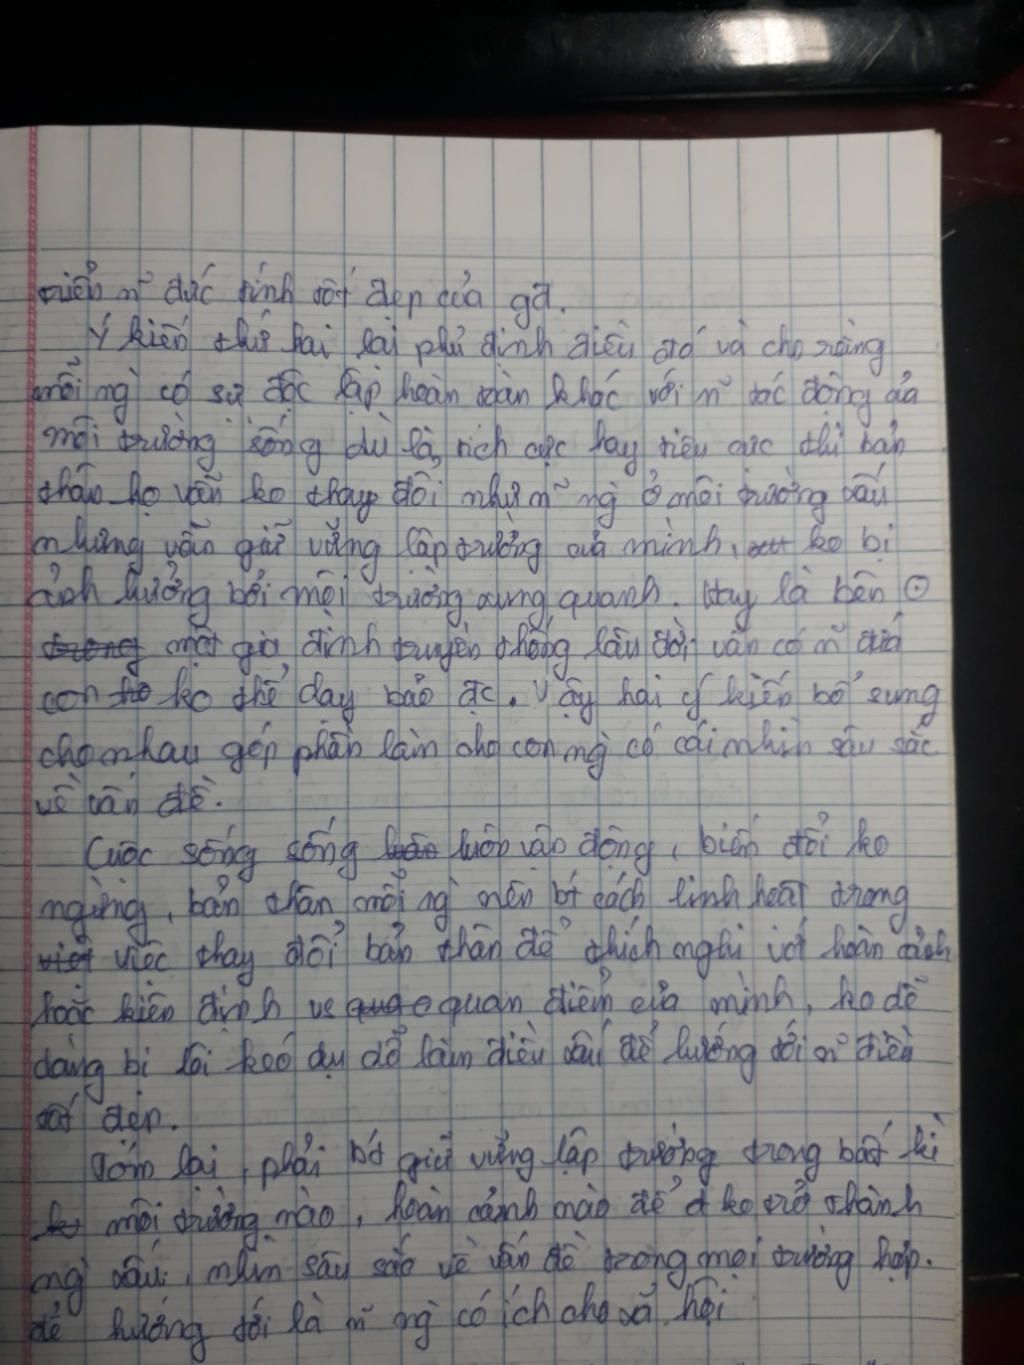 triển n~ đức tính tốt đẹp của gđ.
Ý kiến thứ hai lại phủ định điều đó và cho rằng
mỗi ng` có sự độc lập hoàn toàn khác với n~ tác động của
môi trường sống dù là tích cực hay tiêu cực thì bản
thân họ vẫn ko thay đổi như n~ ng` ở môi trường xấu
nhưng vẫn giữ vững lập trường của mình, ko bị
ảnh hưởng bởi môi trường xung quanh. Hay là bên ⊙
một gia đình truyền thống lâu đời vẫn có n~ đứa
con ko thể dạy bảo đc. Vậy hai ý kiến bổ sung
cho nhau góp phần làm cho con ng` có cái nhìn sâu sắc
về vấn đề.
Cuộc sống sống luôn vận động, biến đổi ko
ngừng, bản thân mỗi ng` nên bt cách linh hoạt trong
việc thay đổi bản thân để thích nghi với hoàn cảnh
hoặc kiên định về quan điểm của mình, ko dễ
dàng bị lôi kéo dụ dỗ làm điều xấu để hướng tới n~ điều
tốt đẹp.
Tóm lại, phải bt giữ vững lập trường trong bất kì
môi trường nào, hoàn cảnh nào để ko trở thành
ng` xấu, nhìn sâu sắc về vấn đề trong mọi trường hợp.
để hướng tới là n~ ng` có ích cho xã hội